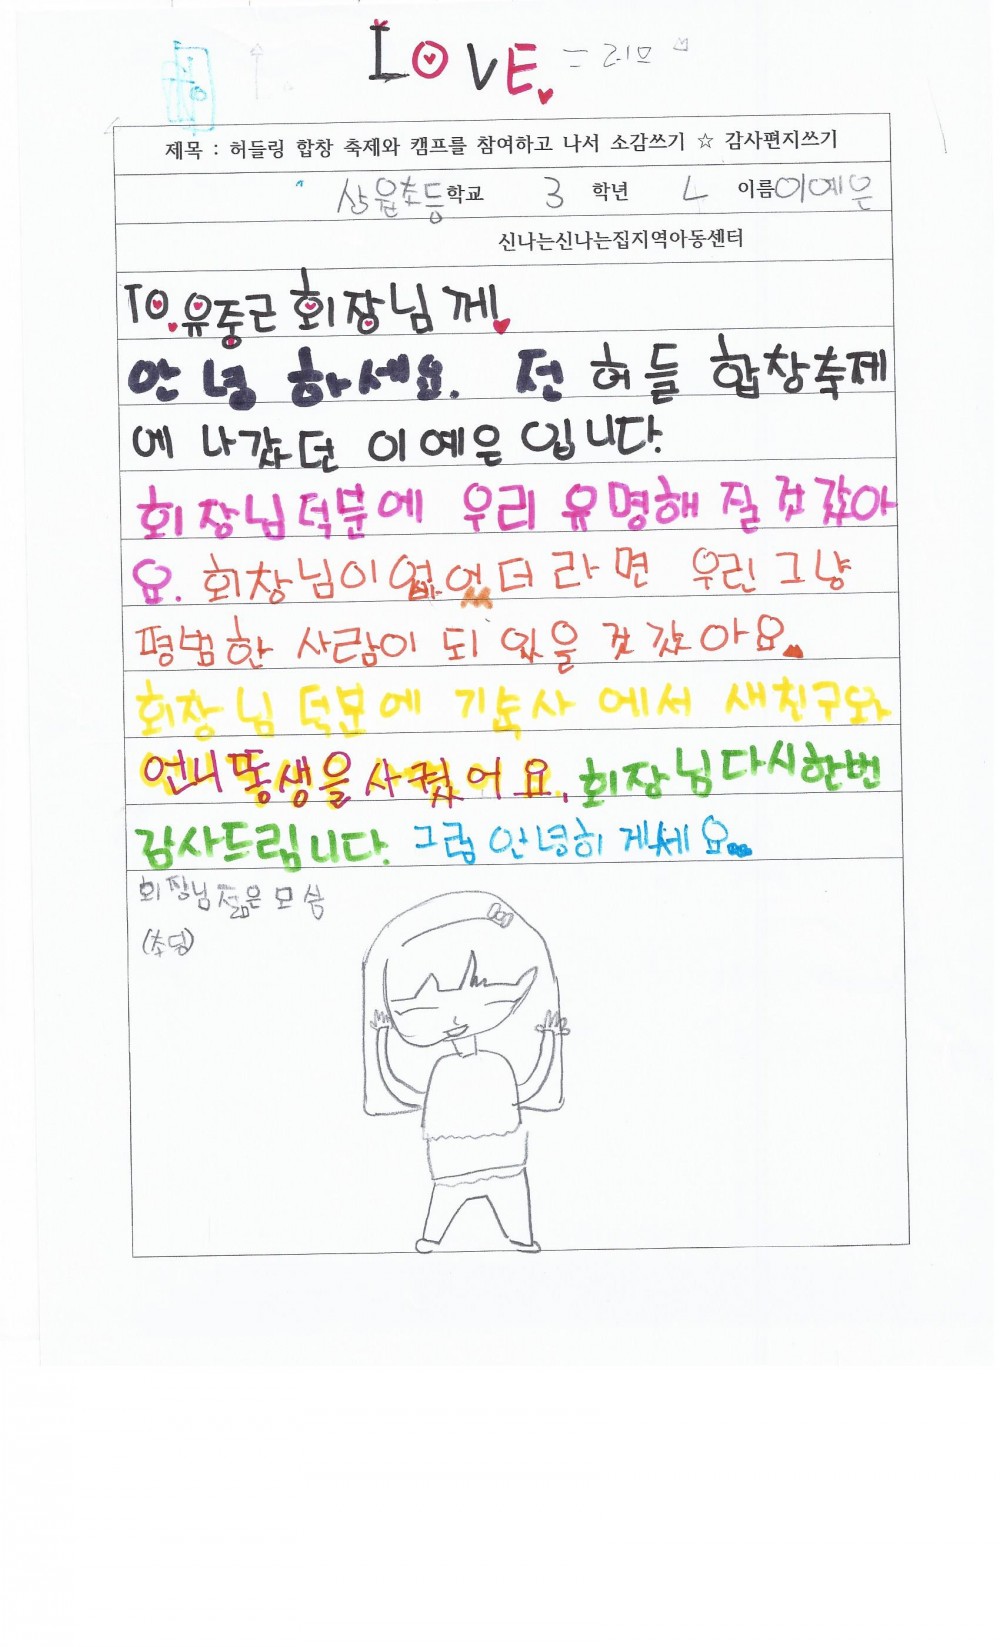 LOVE = 러브
제목 : 허들링 합창 축제와 캠프를 참여하고 나서 소감쓰기 ☆ 감사편지쓰기
상원초등학교 3 학년 4 이름 이예은
신나는신나는집지역아동센터
TO.유중근 회장님께
안녕하세요. 전 허들 합창축제
에 나갔던 이예은입니다.
회장님덕분에 우리 유명해 질것갔아
요. 회장님이 없었더라면 우린 그냥
평범한 사람이 되 있을 것 갔아요.
회장님 덕분에 기숙사 에서 새친구와
언니똥생을 사겼어요. 회장님다시한번
감사드립니다. 그럼 안녕히 게세요.
회장님 젊은 모습
(초딩)